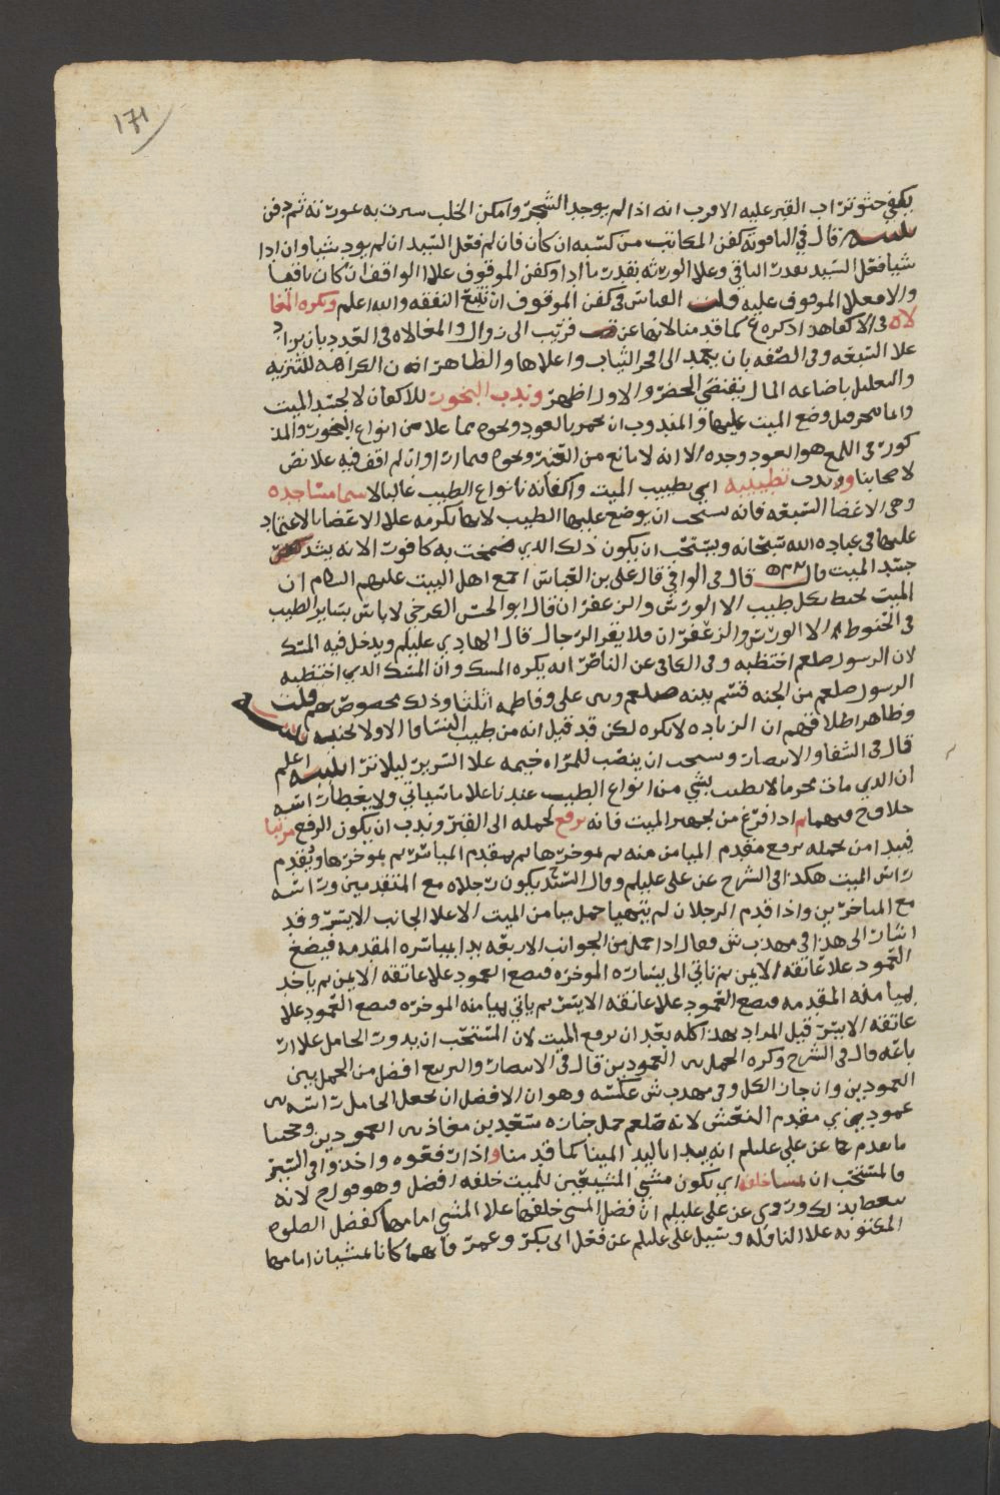 ١٧١
يكفي حثو تراب القبر عليه الاقرب انه اذا لم يوجد الشجر وامكن الخلب سرت به عورته ثم دفن
قال في الياقوته كفن المكاتب من كسبه ان كان فان لم فعلى السيد ان لم يود شيا وان ادا
شيا فعلى السيد بقدر الباقي وعلا الورثه بقدر ما ادا وكفن الموقوف علا الواقف ان كان باقيا
والا فعلا الموقوف عليه قلت القياس في كفن الموقوف ان تتبع النفقه والله اعلم وتكره المغا
لاه في الاكفا هذا ذكره ع كما قدمنا لانها عن قريب الى زوال والمغالاه في العدد بان يزاد
علا السبعه وفي الصفه بان يعمد الى افخر الثياب واعلاها والظاهر ان الكراهه للتنزيه
والتعليل باضاعه المال يقتضي الحضر والاول اظهر وندب البخور للاكفان لا لجسد الميت
وانما تبخر قبل وضع الميت عليها والمندوب ان تجمر بالعود ونحوه مما علا من انواع البخور والمذ
كور في اللمع هو العود وحده الا انه لا مانع من العنبر ونحوه فيما ارا وان لم اقف فيه علا نص
لاصحابنا و وندب تطييبه اي تطييب الميت واكفانه بانواع الطيب غالبا لا سيما مساجده
وهي الاعضا السبعه فانه يستحب ان يوضع عليها الطيب لانها تكرمه علا الاعضا بالاعتماد
عليها في عباده الله سبحانه ويستحب ان يكون ذلك الذي ضمخت به كافور الا انه يشد
جسد الميت قال قال في الوافي قال علي بن العباس اجمع اهل البيت عليهم السلام ان
الميت يحنط بكل طيب الا الورس والزعفران قال ابو الحسن الكرخي لا باس بساير الطيب
في الحنوط الا الورس والزعفران فلا يقر الرجال قال الهادي عليلم ويدخل فيه المسك
لان الرسول صلعم احتنط به وفي الكافي عن الناصر انه يكره المسك وان المسك الذي احتنط به
الرسول صلعم من الجنه قسم بينه صلعم وبين علي وفاطمه اثلثا وذلك مخصوص بهم قلت
وظاهر اطلاقهم ان الزياده لا تكره لكن قد قيل انه من طيب النسا فالاولا تجنبه
قال في الشفا والانتصار ويستحب ان ينصب للمراه خيمه علا السرير ليلا ترا اعلم
ان الذي مات محرما لا يطيب بشي من انواع الطيب عندنا علا ما سياتي ولا يغطا راسه
خلاف ح فيهما ثم اذا فرغ من تجهيز الميت فانه يرفع لحمله الى القبر وندب ان يكون الرفع مرتبا
فيبدا من يحمله برفع مقدم الميامن منه ثم بموخرها ثم بمقدم المياسر ثم بموخرها ويقدم
راس الميت هكذا في الشرح عن علي عليلم وقال السيد يكون رجلاه مع المتقدمين وراسه
مع الماخرين واذا قدم الرجلان لم يتهيا حمل ميامن الميت الا علا الجانب الايسر وقد
اشار الى هذا في مهذب ش فقال اذا حمل من الجوانب الاربعه بدا بمياسره المقدمه فيضع
العمود علا عاتقه الايمن ثم ياتي الى يساره الموخره فيضع العمود علا عاتقه الايمن ثم ياخذ
بميامنه المقدمه فيضع العمود علا عاتقه الايسر ثم ياتي بميامنه الموخره فيضع العمود علا
عاتقه الايسر قيل المراد بهذا كله بعد ان يرفع الميت لان المستحب ان يدور الحامل علا ار
باعه قال في الشرح وكره الحمل بين العمودين قال في الانتصار والتربيع افضل من الحمل بين
العمودين وان جاز الكل وفي مهذب ش عكسه وهو ان الافضل ان يجعل الحامل راسه بين
عمودين في مقدم النعش لانه صلعم حمل جنازه سعد بن معاذ بين العمودين وحجتنا
ما تقدم عن علي عليلم انه يبدا باليد اليمنا كما قدمنا واذا رفعوه واخذوا في السير
فالمستحب ان المشا خلفه اي يكون مشي المشيعين للميت خلفه افضل وهو قول ح لانه
يتعظ بذلك وروي عن علي عليلم ان فضل المشي خلفها علا المشي امامها كفضل الصلوه
المكتوبه علا النافله وسيل علي عليلم عن فعل ابي بكر وعمر فانهما كانا يمشيان امامها